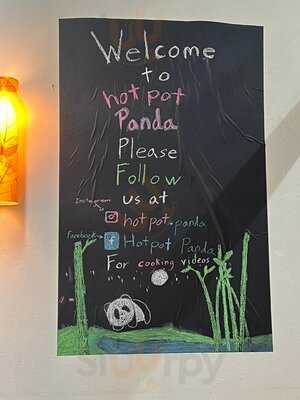 Welcome
to
hot pot
Panda
Please
Follow
us at
Instagram
hot pot.panda
Facebook
f Hotpot Panda
For cooking videos
sluurpy